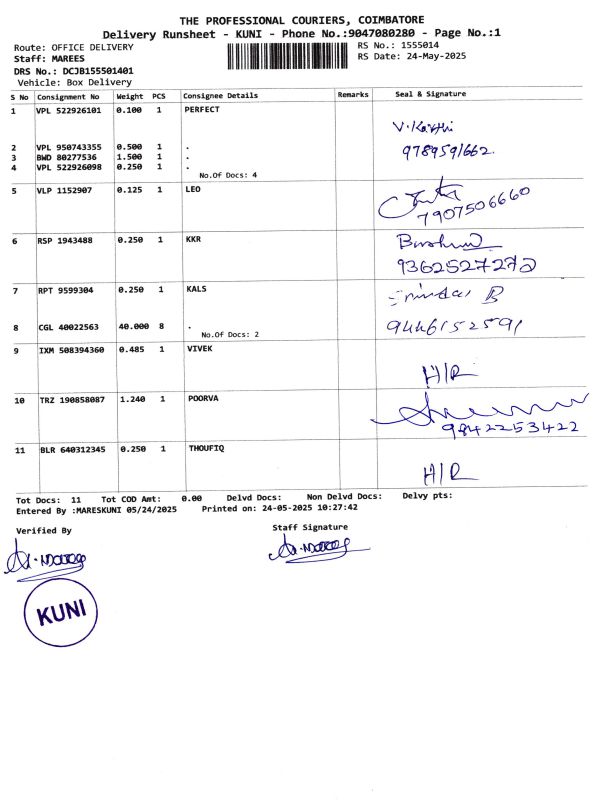 THE PROFESSIONAL COURIERS, COIMBATORE
Delivery Runsheet - KUNI - Phone No.:9047080280 - Page No.:1
Route: OFFICE DELIVERY RS No.: 1555014
Staff: MAREES RS Date: 24-May-2025
DRS No.: DCJB155501401
Vehicle: Box Delivery
S No Consignment No Weight PCS Consignee Details Remarks Seal & Signature
1 VPL 522926101 0.100 1 PERFECT
V.Karthi
2 VPL 950743355 0.500 1 . 9789591662
3 BWD 80277536 1.500 1 .
4 VPL 522926098 0.250 1 .
No.Of Docs: 4
5 VLP 1152907 0.125 1 LEO
7907506660
6 RSP 1943488 0.250 1 KKR
9362527272
7 RPT 9599304 0.250 1 KALS
8 CGL 40022563 40.000 8 . 9446152591
No.Of Docs: 2
9 IXM 508394360 0.485 1 VIVEK
H/R
10 TRZ 190858087 1.240 1 POORVA
9842253422
11 BLR 640312345 0.250 1 THOUFIQ
H/R
Tot Docs: 11 Tot COD Amt: 0.00 Delvd Docs: Non Delvd Docs: Delvy pts:
Entered By :MARESKUNI 05/24/2025 Printed on: 24-05-2025 10:27:42
Verified By Staff Signature
KUNI